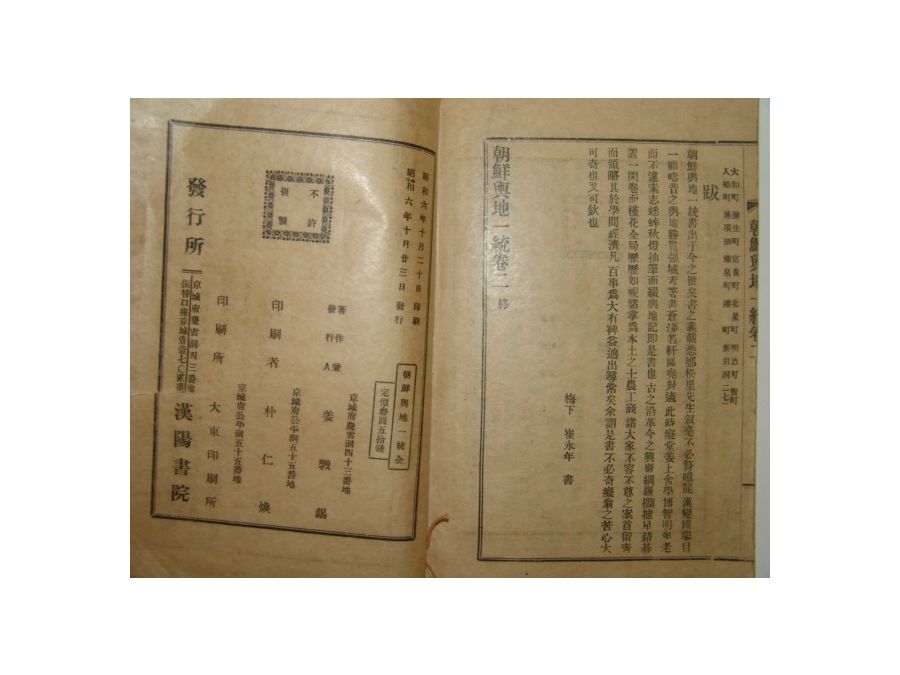 朝鮮輿地一統卷二
大和町 彌生町 富良町 北星町 明治町 賀町
入船町 港町
跋
朝鮮輿地一統書出于今之世矣書之義載悉鄭松里先生叙毫不必贅
一顧疇昔之輿地勝覽彊域考等書
而不遑素志蟋蟀秋燈抽筆而綴輿地記即是書也古之沿革今之興廢網羅
置一開卷而槿花全局歷歷如視諸掌爲本土之士農工商諸大家不容不尊之案首留靑
而領略其於學問經濟凡百事爲大有裨益逈出尋常矣余謂是書不必奇癡翁之苦心大
可奇也又可欽也
梅下 崔永年 書
朝鮮輿地一統卷二 終
昭和六年十月二十日印刷
昭和六年十月廿三日發行
朝鮮輿地一統全
定價參圓五拾錢
不許
複製
京城府慶雲洞四十三番地
著作兼
發行人 姜斅錫
京城府公平洞五十五番地
印刷者 朴仁煥
京城府公平洞五十五番地
印刷所 大東印刷所
京城府慶雲洞四三番地
發行所 漢陽書院